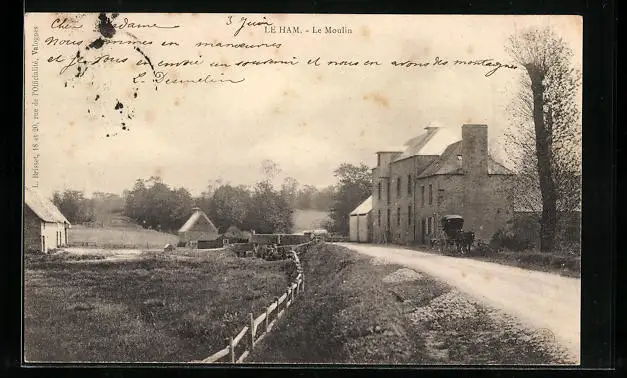 Chere Madame 3 Juin
LE HAM. - Le Moulin
Nous sommes en manœuvres
et je vous envoie un souvenir et nous en avons des montagnes
L. Desmelin
L. Brisset, 18 et 20, rue de l'Officialité, Valognes